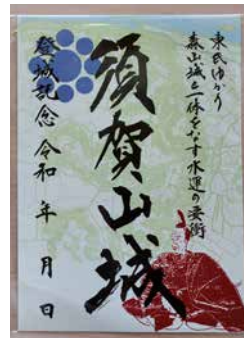 東氏ゆかり
森山城と一体をなす水運の要衝
須賀山城
登城記念 令和 年 月 日